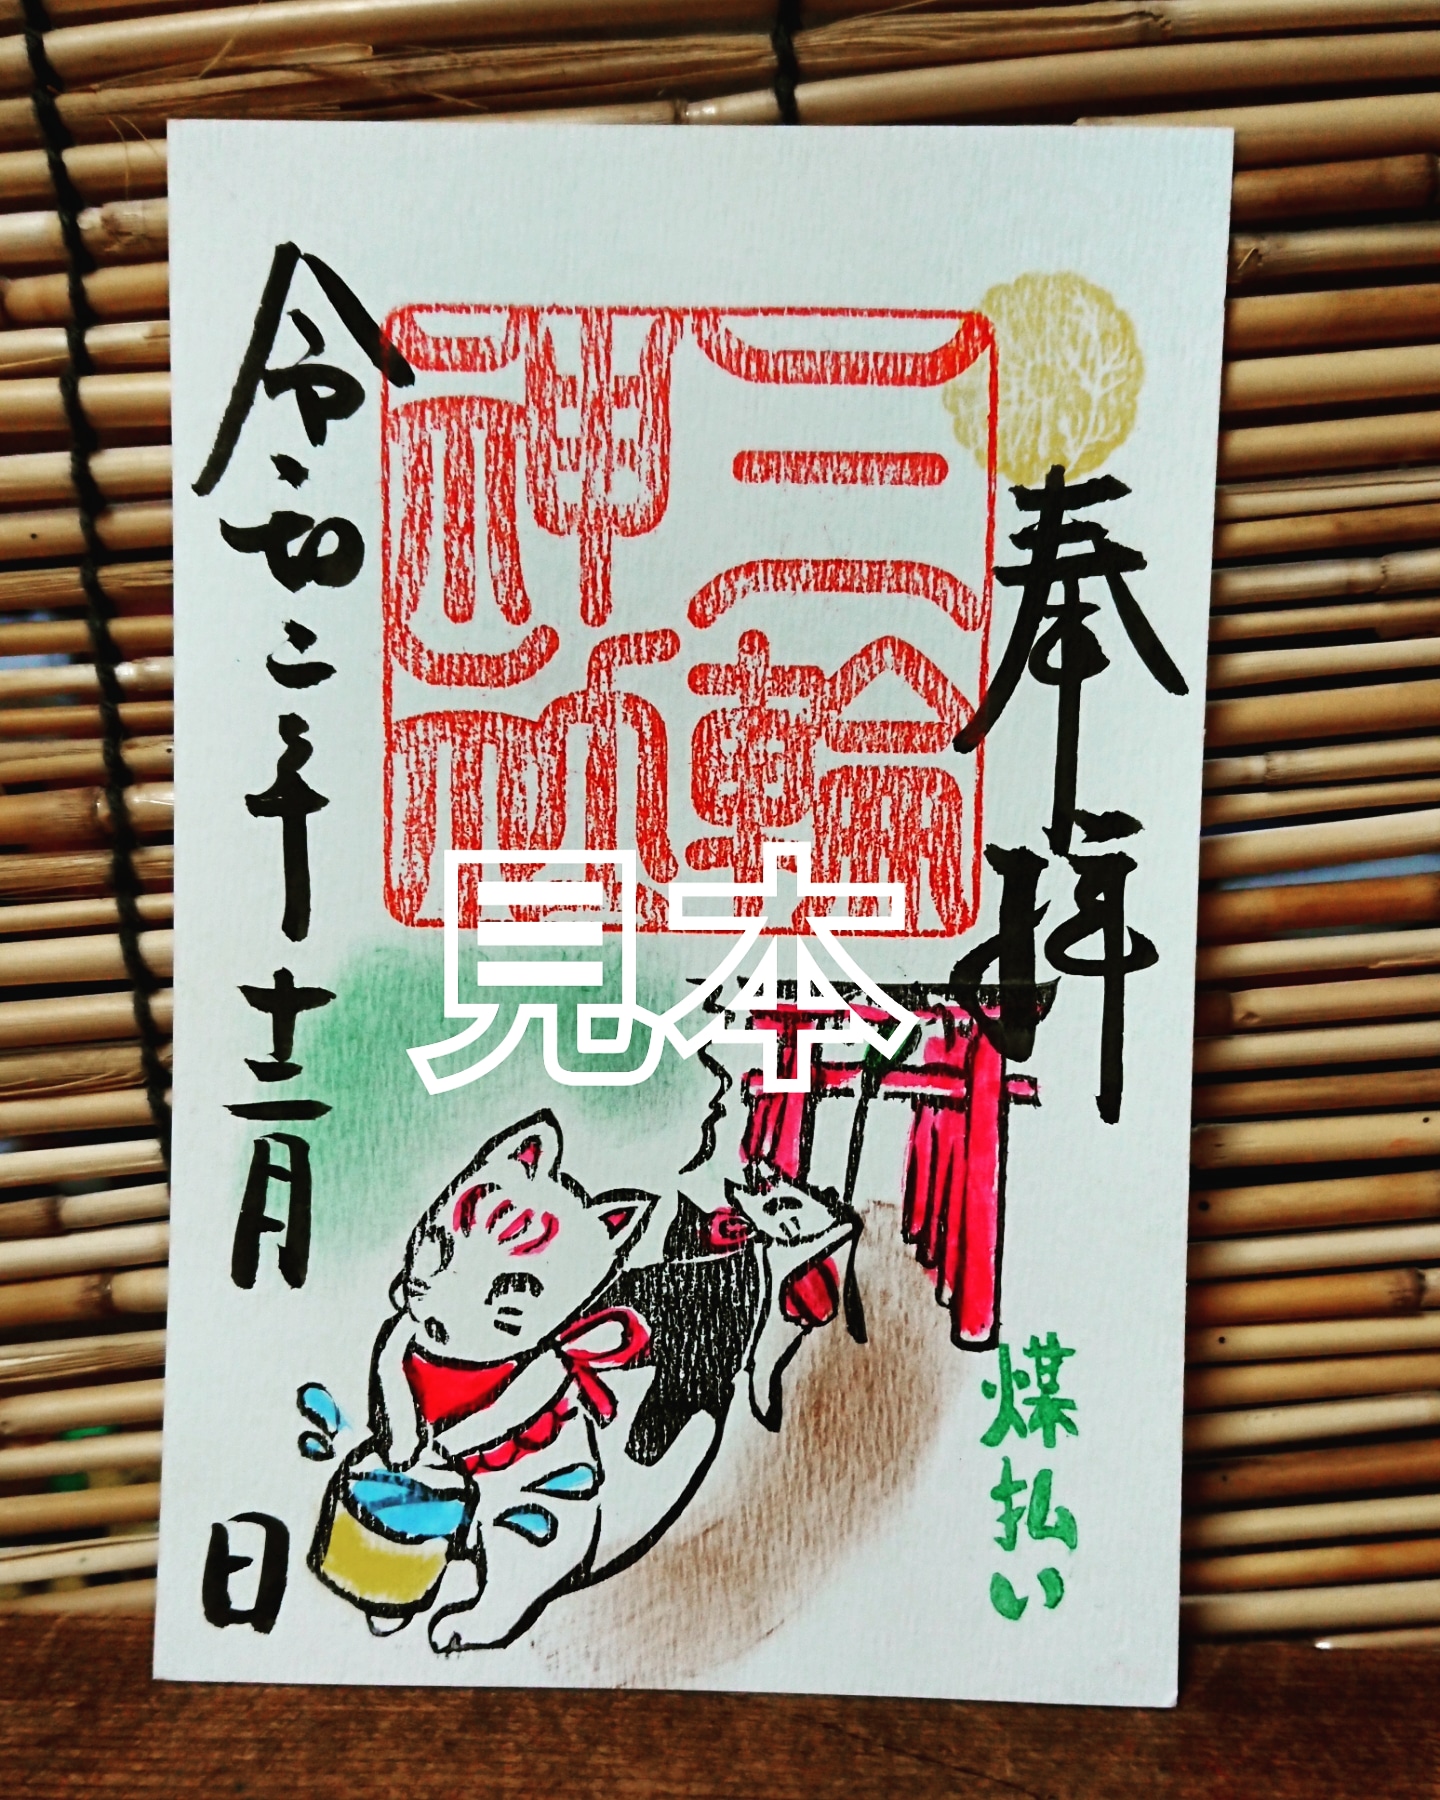 奉拝
三輪
神社
令和二年十二月 日
煤払い
見本